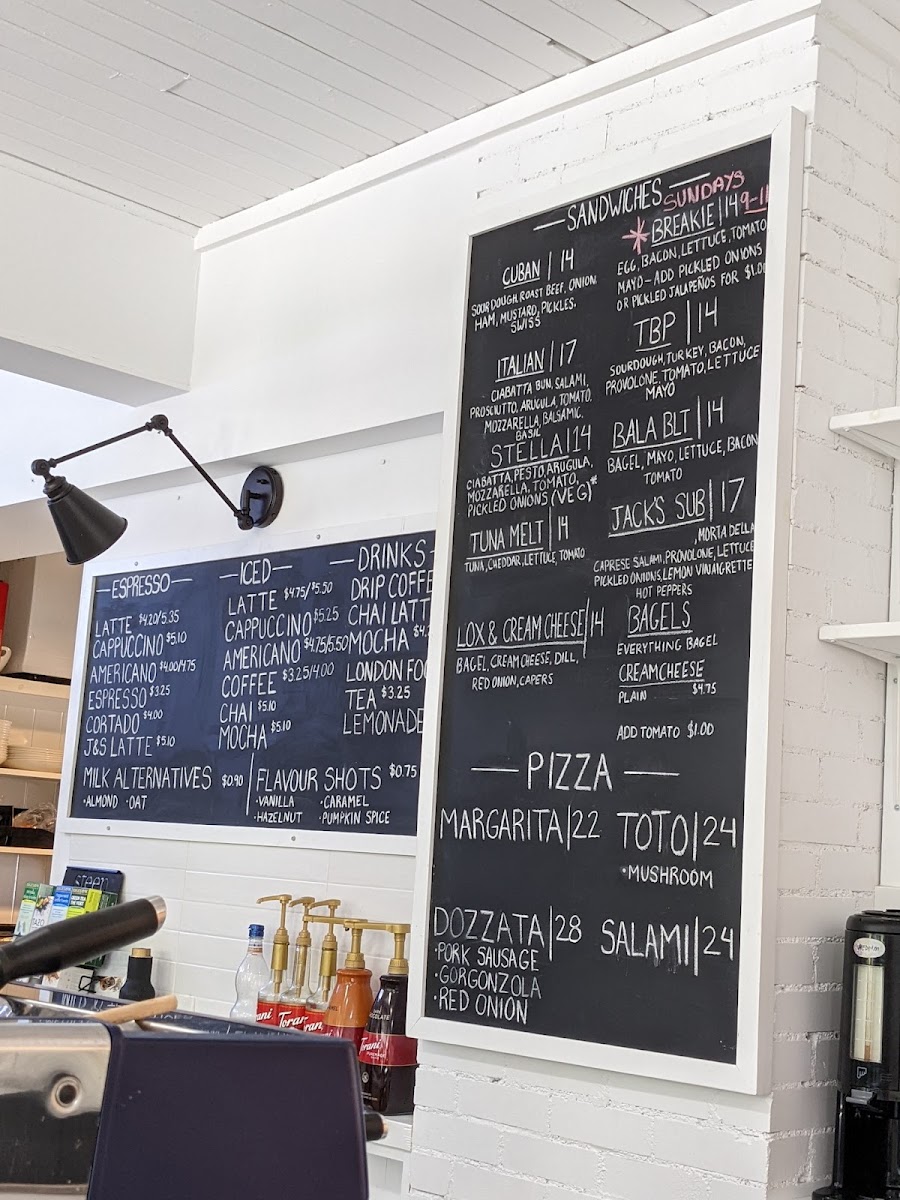 SANDWICHES
SUNDAYS
CUBAN | 14
SOURDOUGH, ROAST BEEF, ONION,
HAM, MUSTARD, PICKLES,
SWISS
ITALIAN | 17
CIABATTA BUN, SALAMI,
PROSCIUTTO, ARUGULA, TOMATO,
MOZZARELLA, BALSAMIC,
BASIL
STELLA | 14
CIABATTA, PESTO, ARUGULA,
MOZZARELLA, TOMATO,
PICKLED ONIONS (VEG)*
TUNA MELT | 14
TUNA, CHEDDAR, LETTUCE, TOMATO
LOX & CREAM CHEESE | 14
BAGEL, CREAM CHEESE, DILL,
RED ONION, CAPERS
* BREAKIE | 14 9-11
EGG, BACON, LETTUCE, TOMATO
MAYO - ADD PICKLED ONIONS
OR PICKLED JALAPEÑOS FOR $1.00
TBP | 14
SOURDOUGH, TURKEY, BACON,
PROVOLONE, TOMATO, LETTUCE
MAYO
BALA BLT | 14
BAGEL, MAYO, LETTUCE, BACON
TOMATO
JACK'S SUB | 17
, MORTADELLA
CAPRESE SALAMI, PROVOLONE, LETTUCE
PICKLED ONIONS, LEMON VINAIGRETTE
HOT PEPPERS
BAGELS
EVERYTHING BAGEL
CREAMCHEESE
PLAIN $4.75
ADD TOMATO $1.00
PIZZA
MARGARITA | 22
TOTO | 24
• MUSHROOM
DOZZATA | 28
• PORK SAUSAGE
• GORGONZOLA
• RED ONION
SALAMI | 24
ESPRESSO
LATTE $4.20/5.35
CAPPUCCINO $5.10
AMERICANO $4.00/4.75
ESPRESSO $3.25
CORTADO $4.00
J&S LATTE $5.10
ICED
LATTE $4.75/$5.50
CAPPUCCINO $5.25
AMERICANO $4.75/5.50
COFFEE $3.25/4.00
CHAI $5.10
MOCHA $5.10
DRINKS
DRIP COFFE
CHAI LATT
MOCHA $4.
LONDON FO
TEA $3.25
LEMONADE
MILK ALTERNATIVES $0.90
• ALMOND • OAT
FLAVOUR SHOTS $0.75
• VANILLA • CARAMEL
• HAZELNUT • PUMPKIN SPICE
steep
TAZO
Torani
Torani